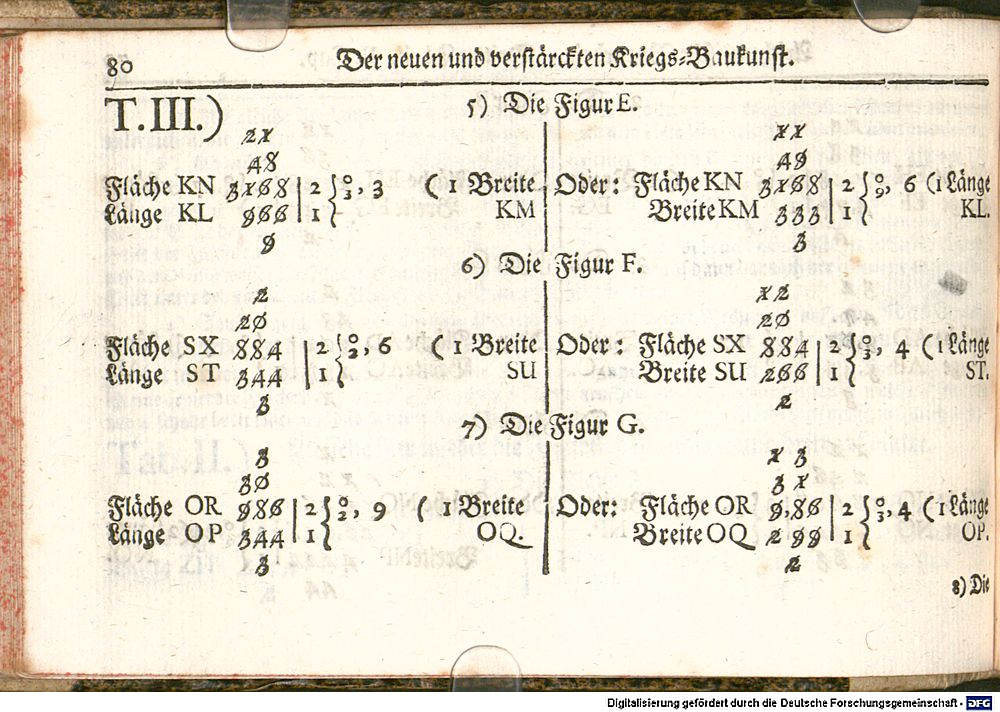 80
Der neuen und verstärckten Kriegs-Baukunst.
T. III.)
5) Die Figur E.
21
48
Fläche KN 3168 | 2 { 0/3, 3 ( 1 Breite
Länge KL 966 | 1 { KM
9
11
49
Oder: Fläche KN 3168 | 2 { 0/9, 6 (1 Länge
Breite KM 333 | 1 { KL.
3
6) Die Figur F.
2
20
Fläche SX 884 | 2 { 0/2, 6 ( 1 Breite
Länge ST 344 | 1 { SU
3
12
20
Oder: Fläche SX 884 | 2 { 0/3, 4 (1 Länge
Breite SU 266 | 1 { ST.
2
7) Die Figur G.
3
30
Fläche OR 986 | 2 { 0/2, 9 ( 1 Breite
Länge OP 344 | 1 { OQ.
3
1 3
31
Oder: Fläche OR 9,86 | 2 { 0/3, 4 (1 Länge
Breite OQ 299 | 1 { OP.
2
8) Die
Digitalisierung gefördert durch die Deutsche Forschungsgemeinschaft - DFG